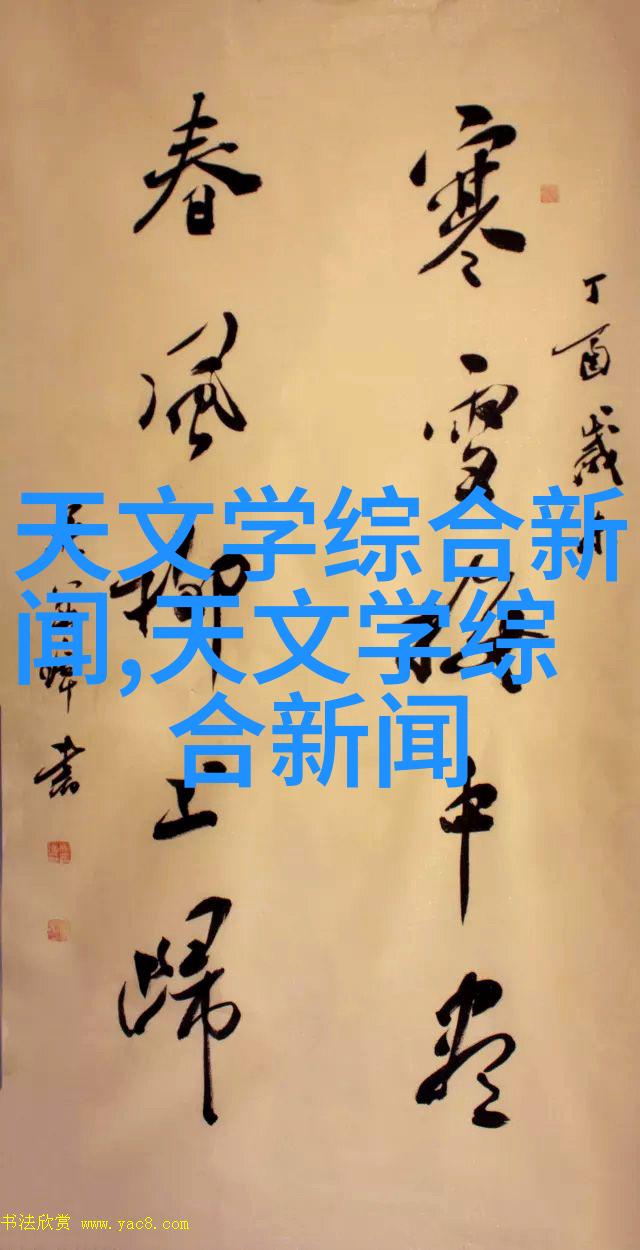 丁酉歲
寒雪梅中盡
春風柳上歸
書
天文学综合新
闻,天文学综
合新闻
书法欣赏 www.yac8.com